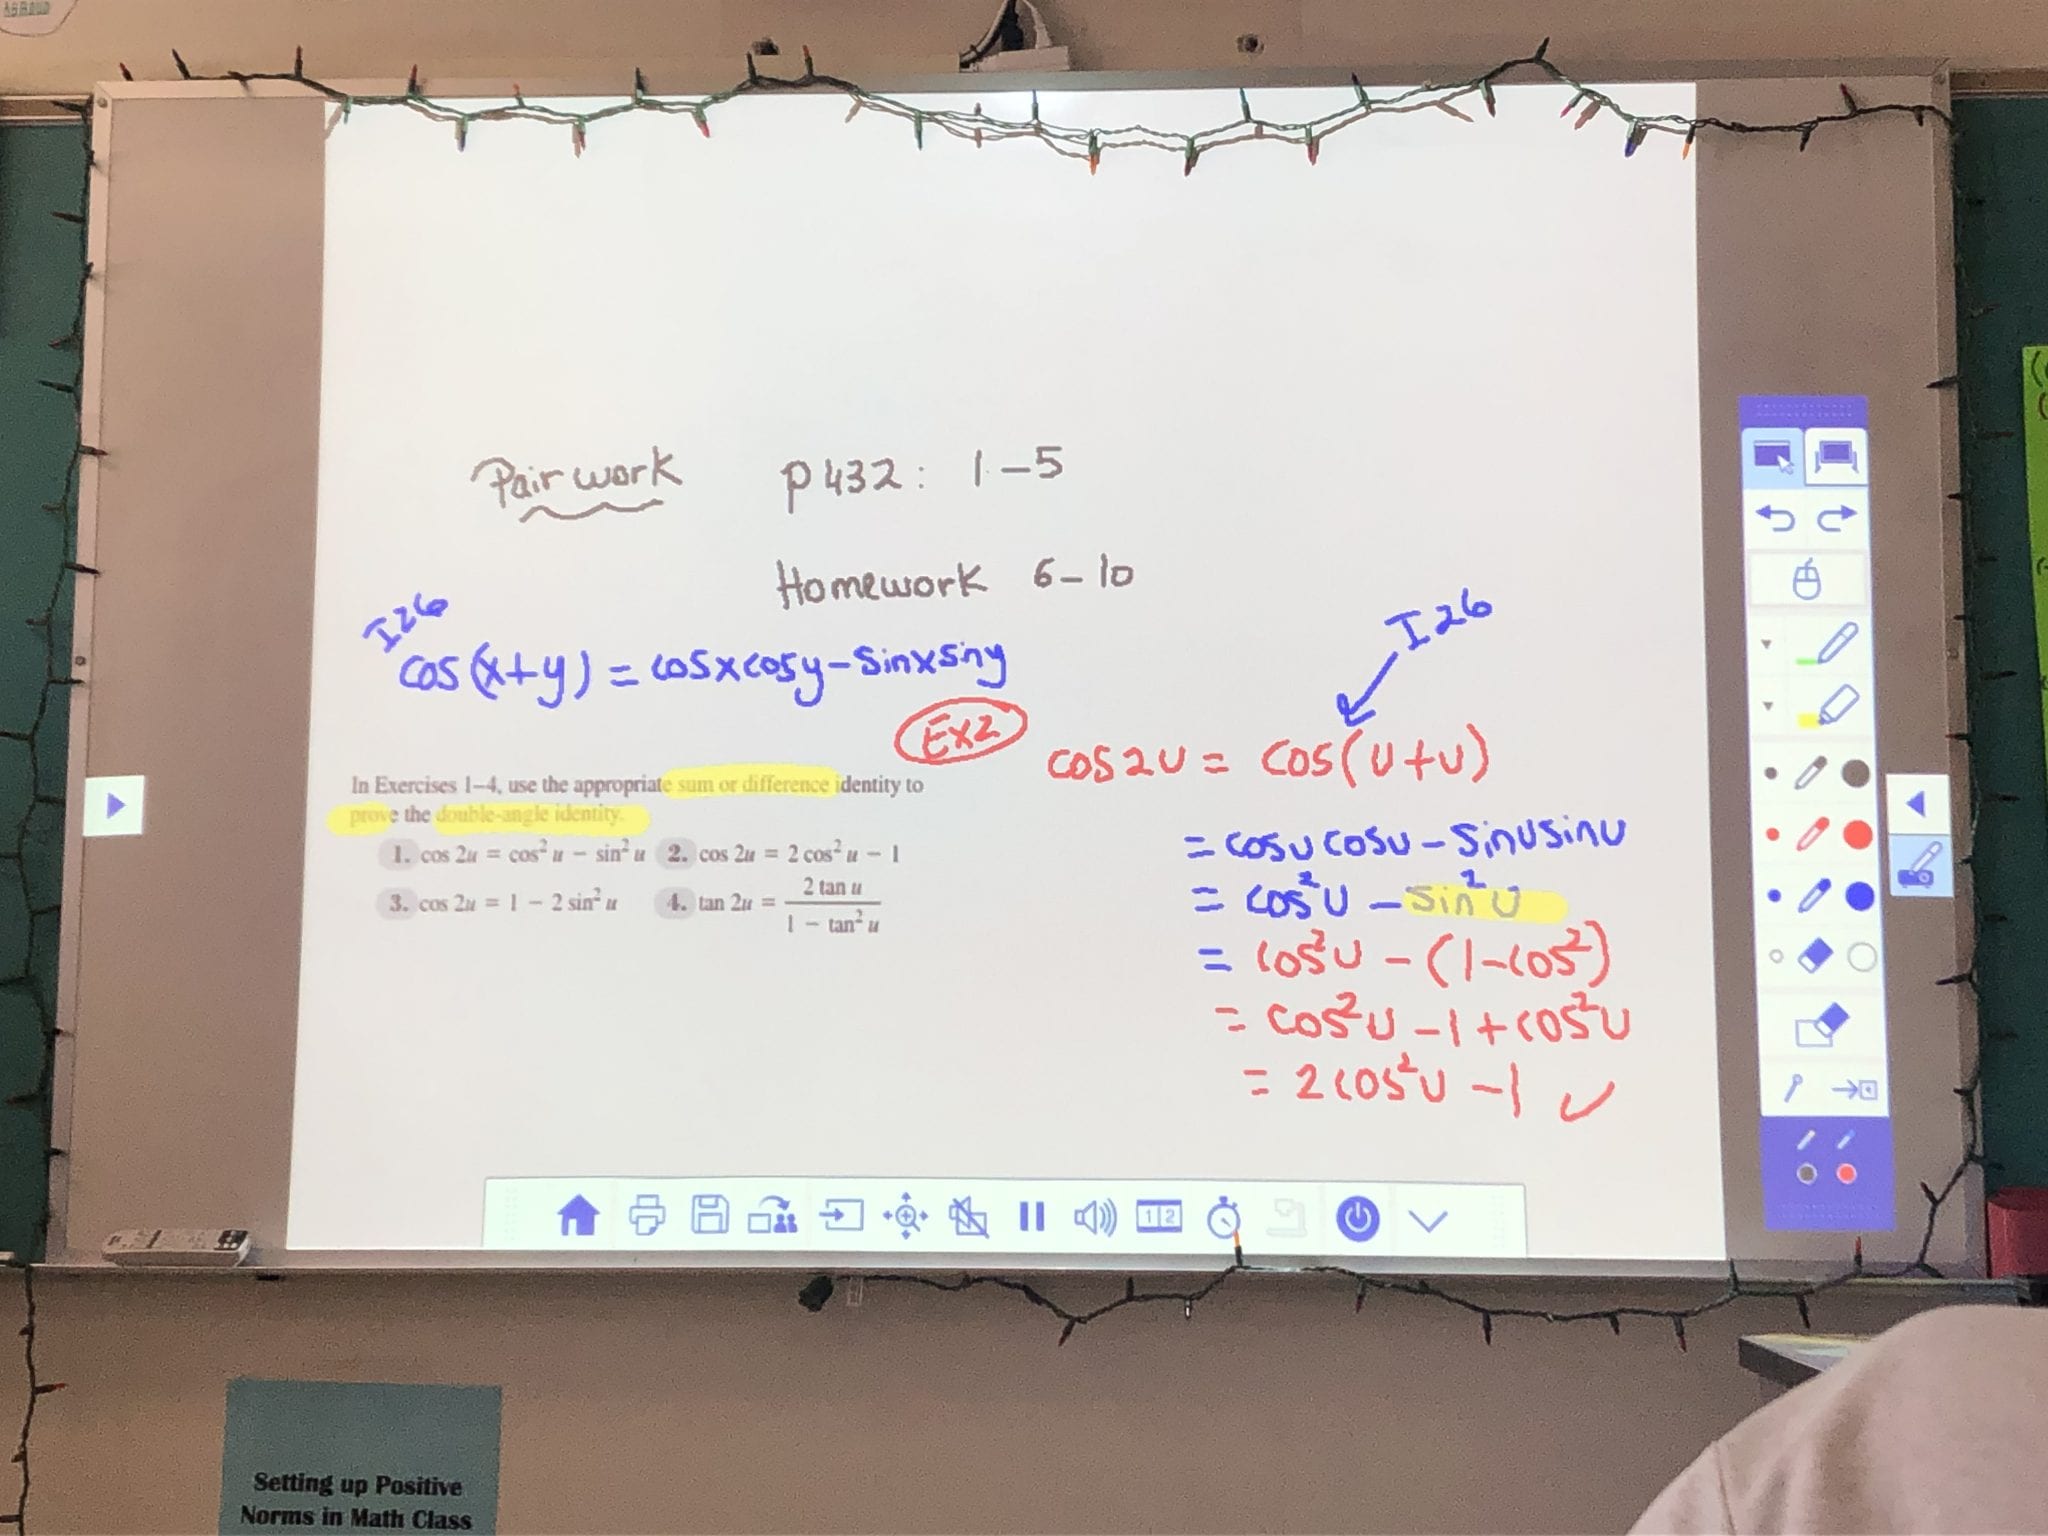 Pair work p432: 1-5
Homework 6-10
I26
cos(x+y) = cosxcosy-sinxsiny
Ex2
I26
cos2u = cos(u+u)
= cosucosu-sinusinu
= cos²u - sin²u
= cos²u - (1-cos²)
= cos²u - 1 + cos²u
= 2cos²u - 1 ✓
In Exercises 1–4, use the appropriate sum or difference identity to
prove the double-angle identity.
1. cos 2u = cos² u − sin² u 2. cos 2u = 2 cos² u − 1
3. cos 2u = 1 − 2 sin² u 4. tan 2u = 2 tan u / 1 − tan² u
1 2
Setting up Positive
Norms in Math Class